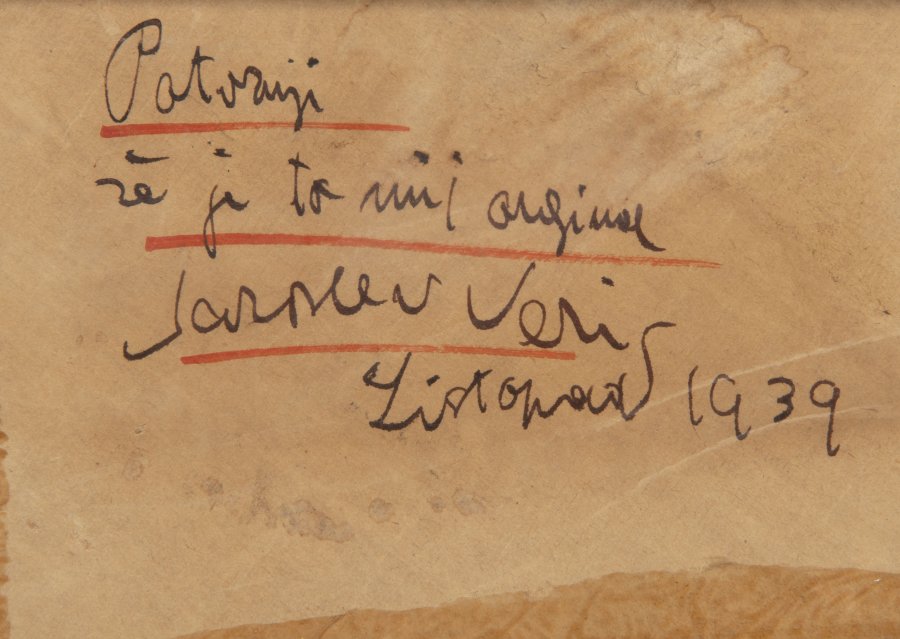 Potvrzuji
že je to můj orginal
Jaroslav Veris
Listopad 1939